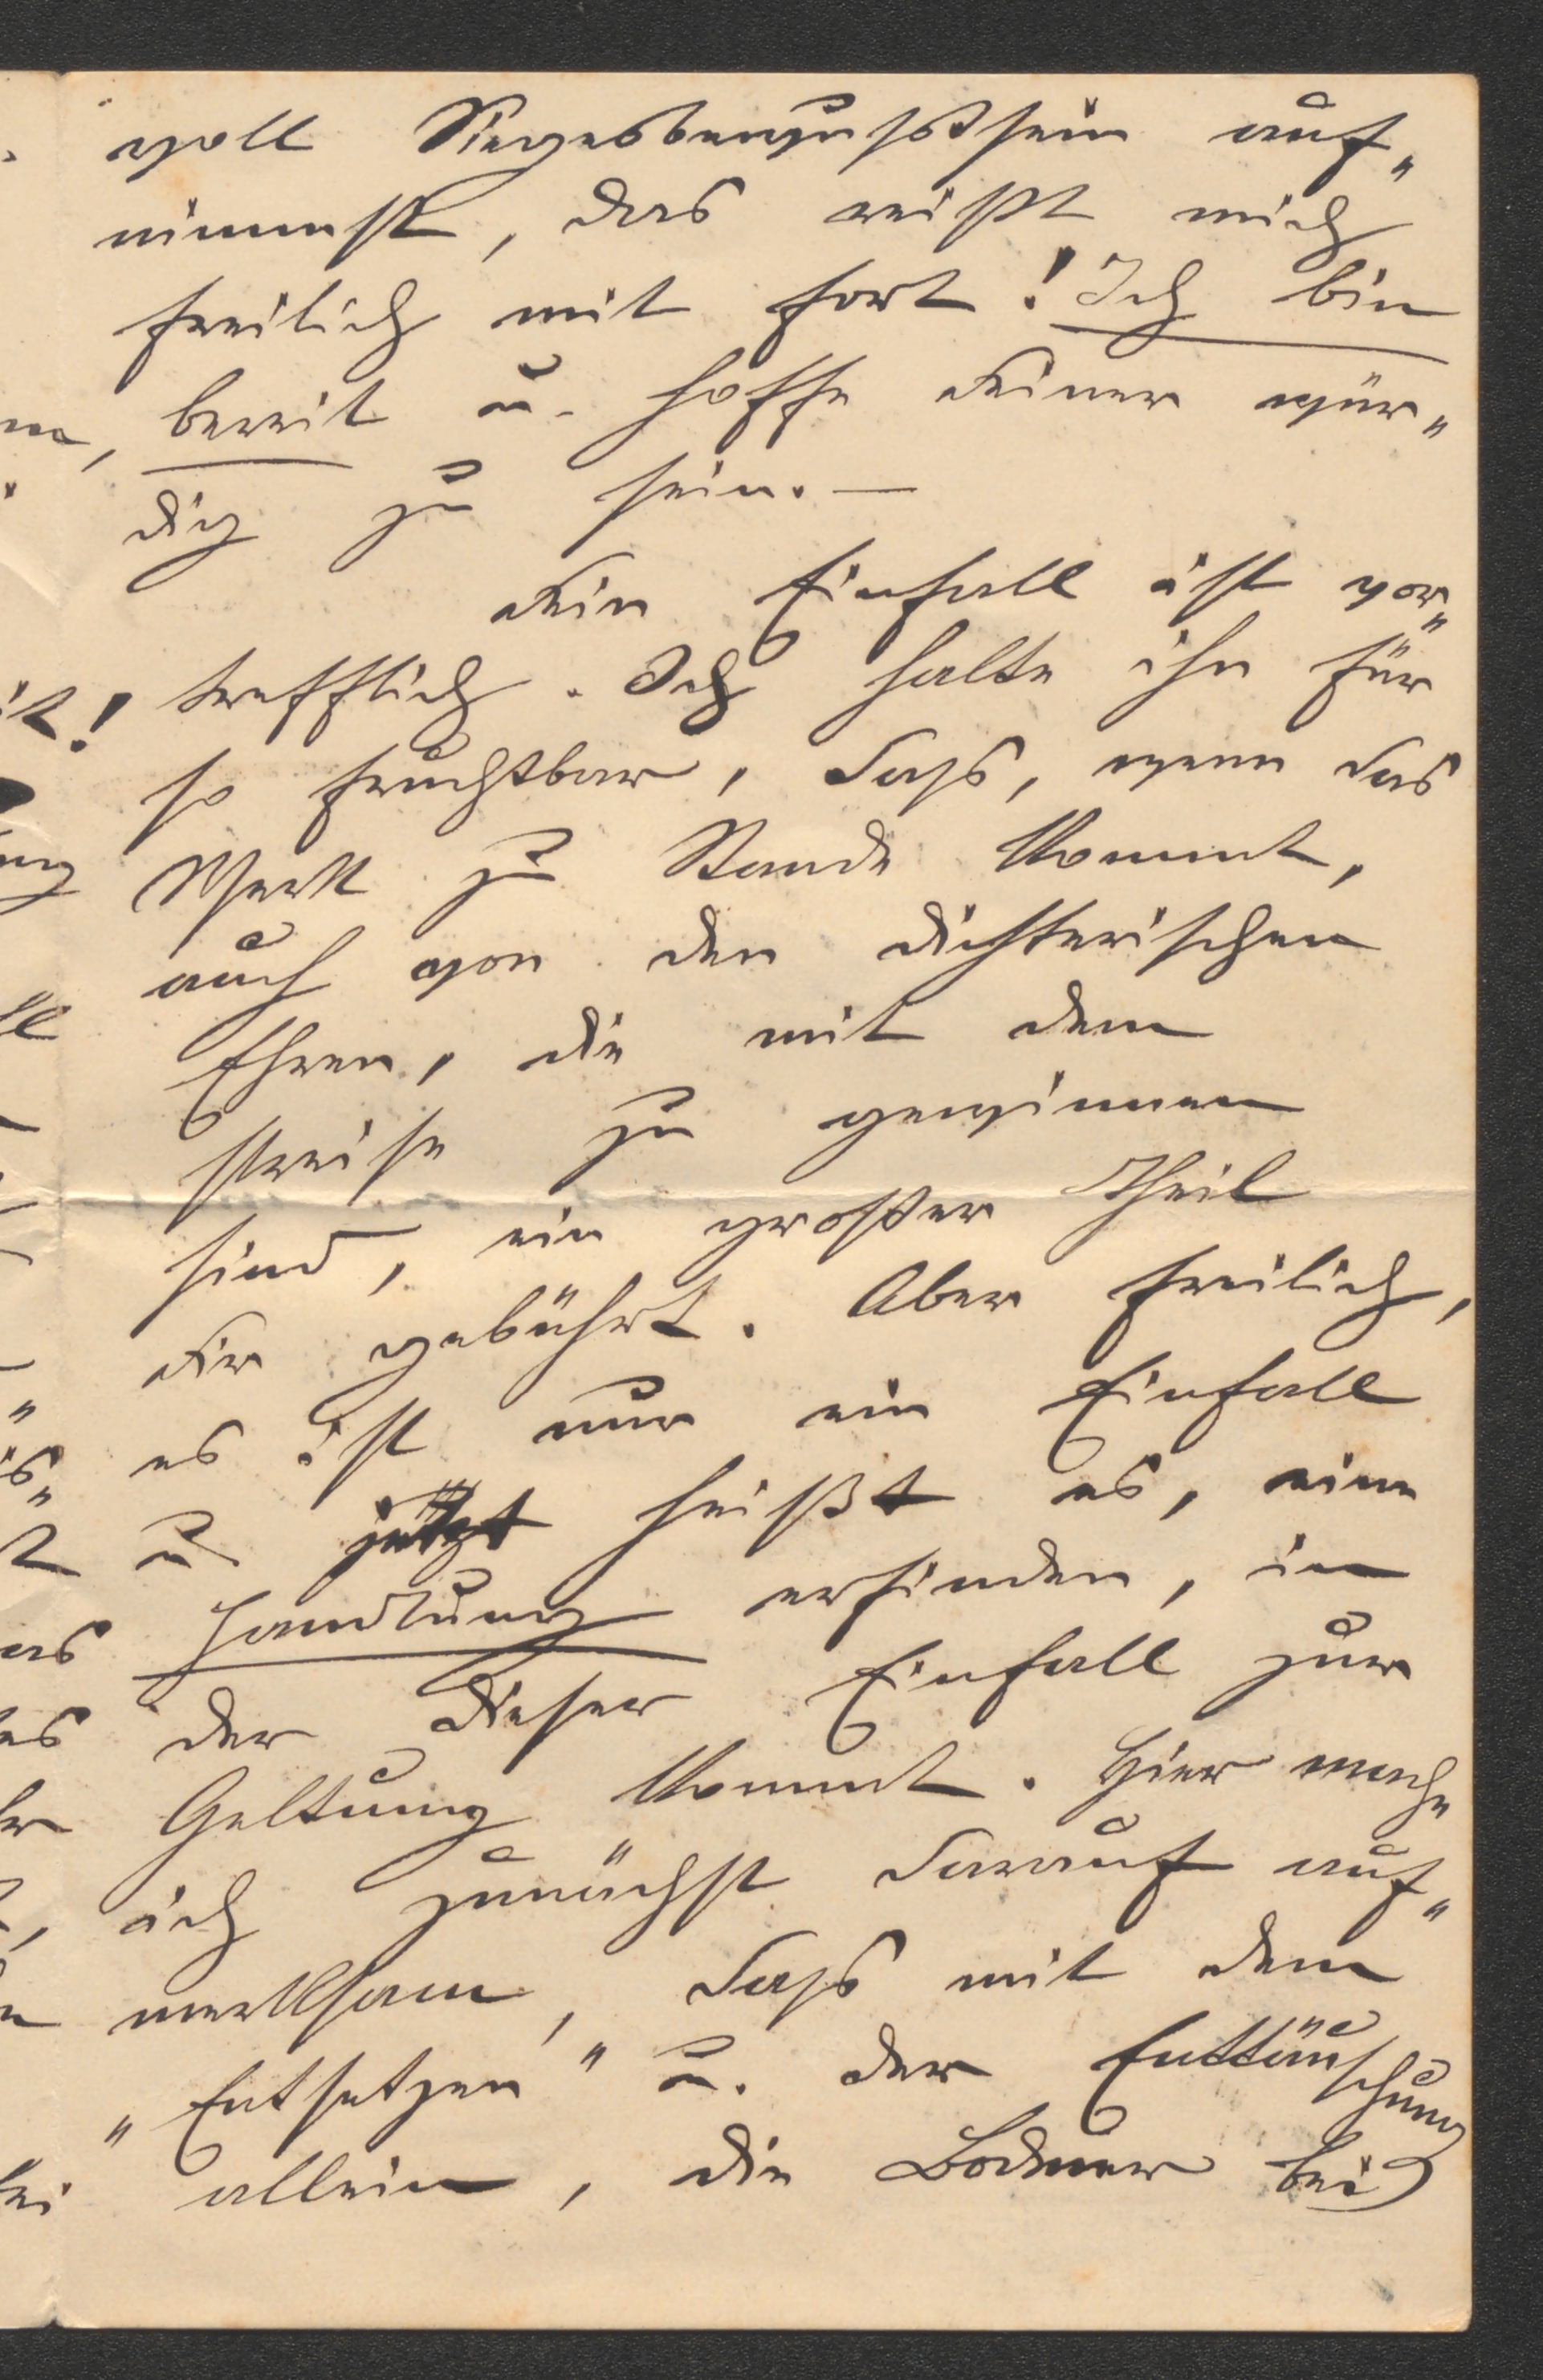 voll Siegesbewußstsein auf„
nimmst, das reißt mich
freilich mit fort! Ich bin
bereit u. hoffe Deiner wür„
dig zu sein. —
Dein Einfall ist vor„
trefflich. Ich halte ihn für
so fruchtbar, dass, wenn das
Werk zu Stande kommt,
auch von den dichterischen
Ehren, die mit dem
Preise zu gewinnen
sind, ein großer Theil
Dir gebührt. Aber freilich,
es ist nur ein Einfall
u. jetzt heißt es, eine
Handlung erfinden, in
der dieser Einfall zur
Geltung kommt. Hier mache
ich zunächst darauf auf„
merksam, dass mit dem
„Entsetzen" u. der Enttäuschung
allein, die Bodmer bei